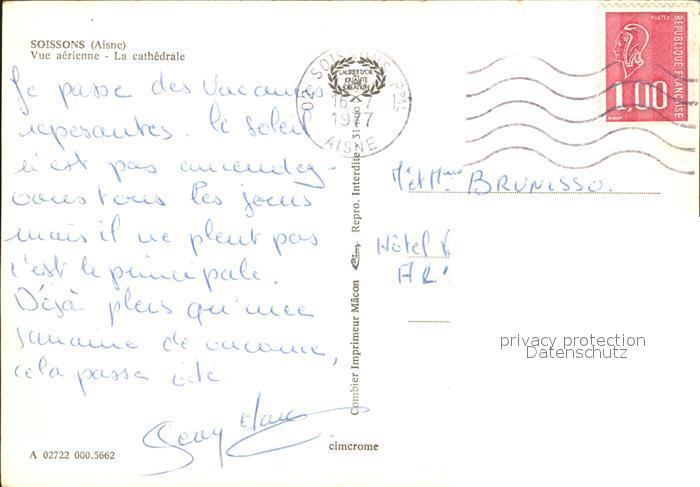 SOISSONS (Aisne)
Vue aérienne - La cathédrale
Je passe des vacances
reposantes. Le soleil
n'est pas au rendez-
vous tous les jours
mais il ne pleut pas
c'est le principale.
Déjà plus qu'une
semaine de vacance,
cela passe vite.
A 02722 000.5662
cimcrome
Combier Imprimeur Mâcon Cim Repro. Interdite
LAURIER D'OR
DE QUALITE
CREATION
02 SOISSONS PPAL
16-7
1977
AISNE
POSTES
REPUBLIQUE FRANÇAISE
1,00
M. et Mme BRUNISSO.
Hôtel
privacy protection
Datenschutz